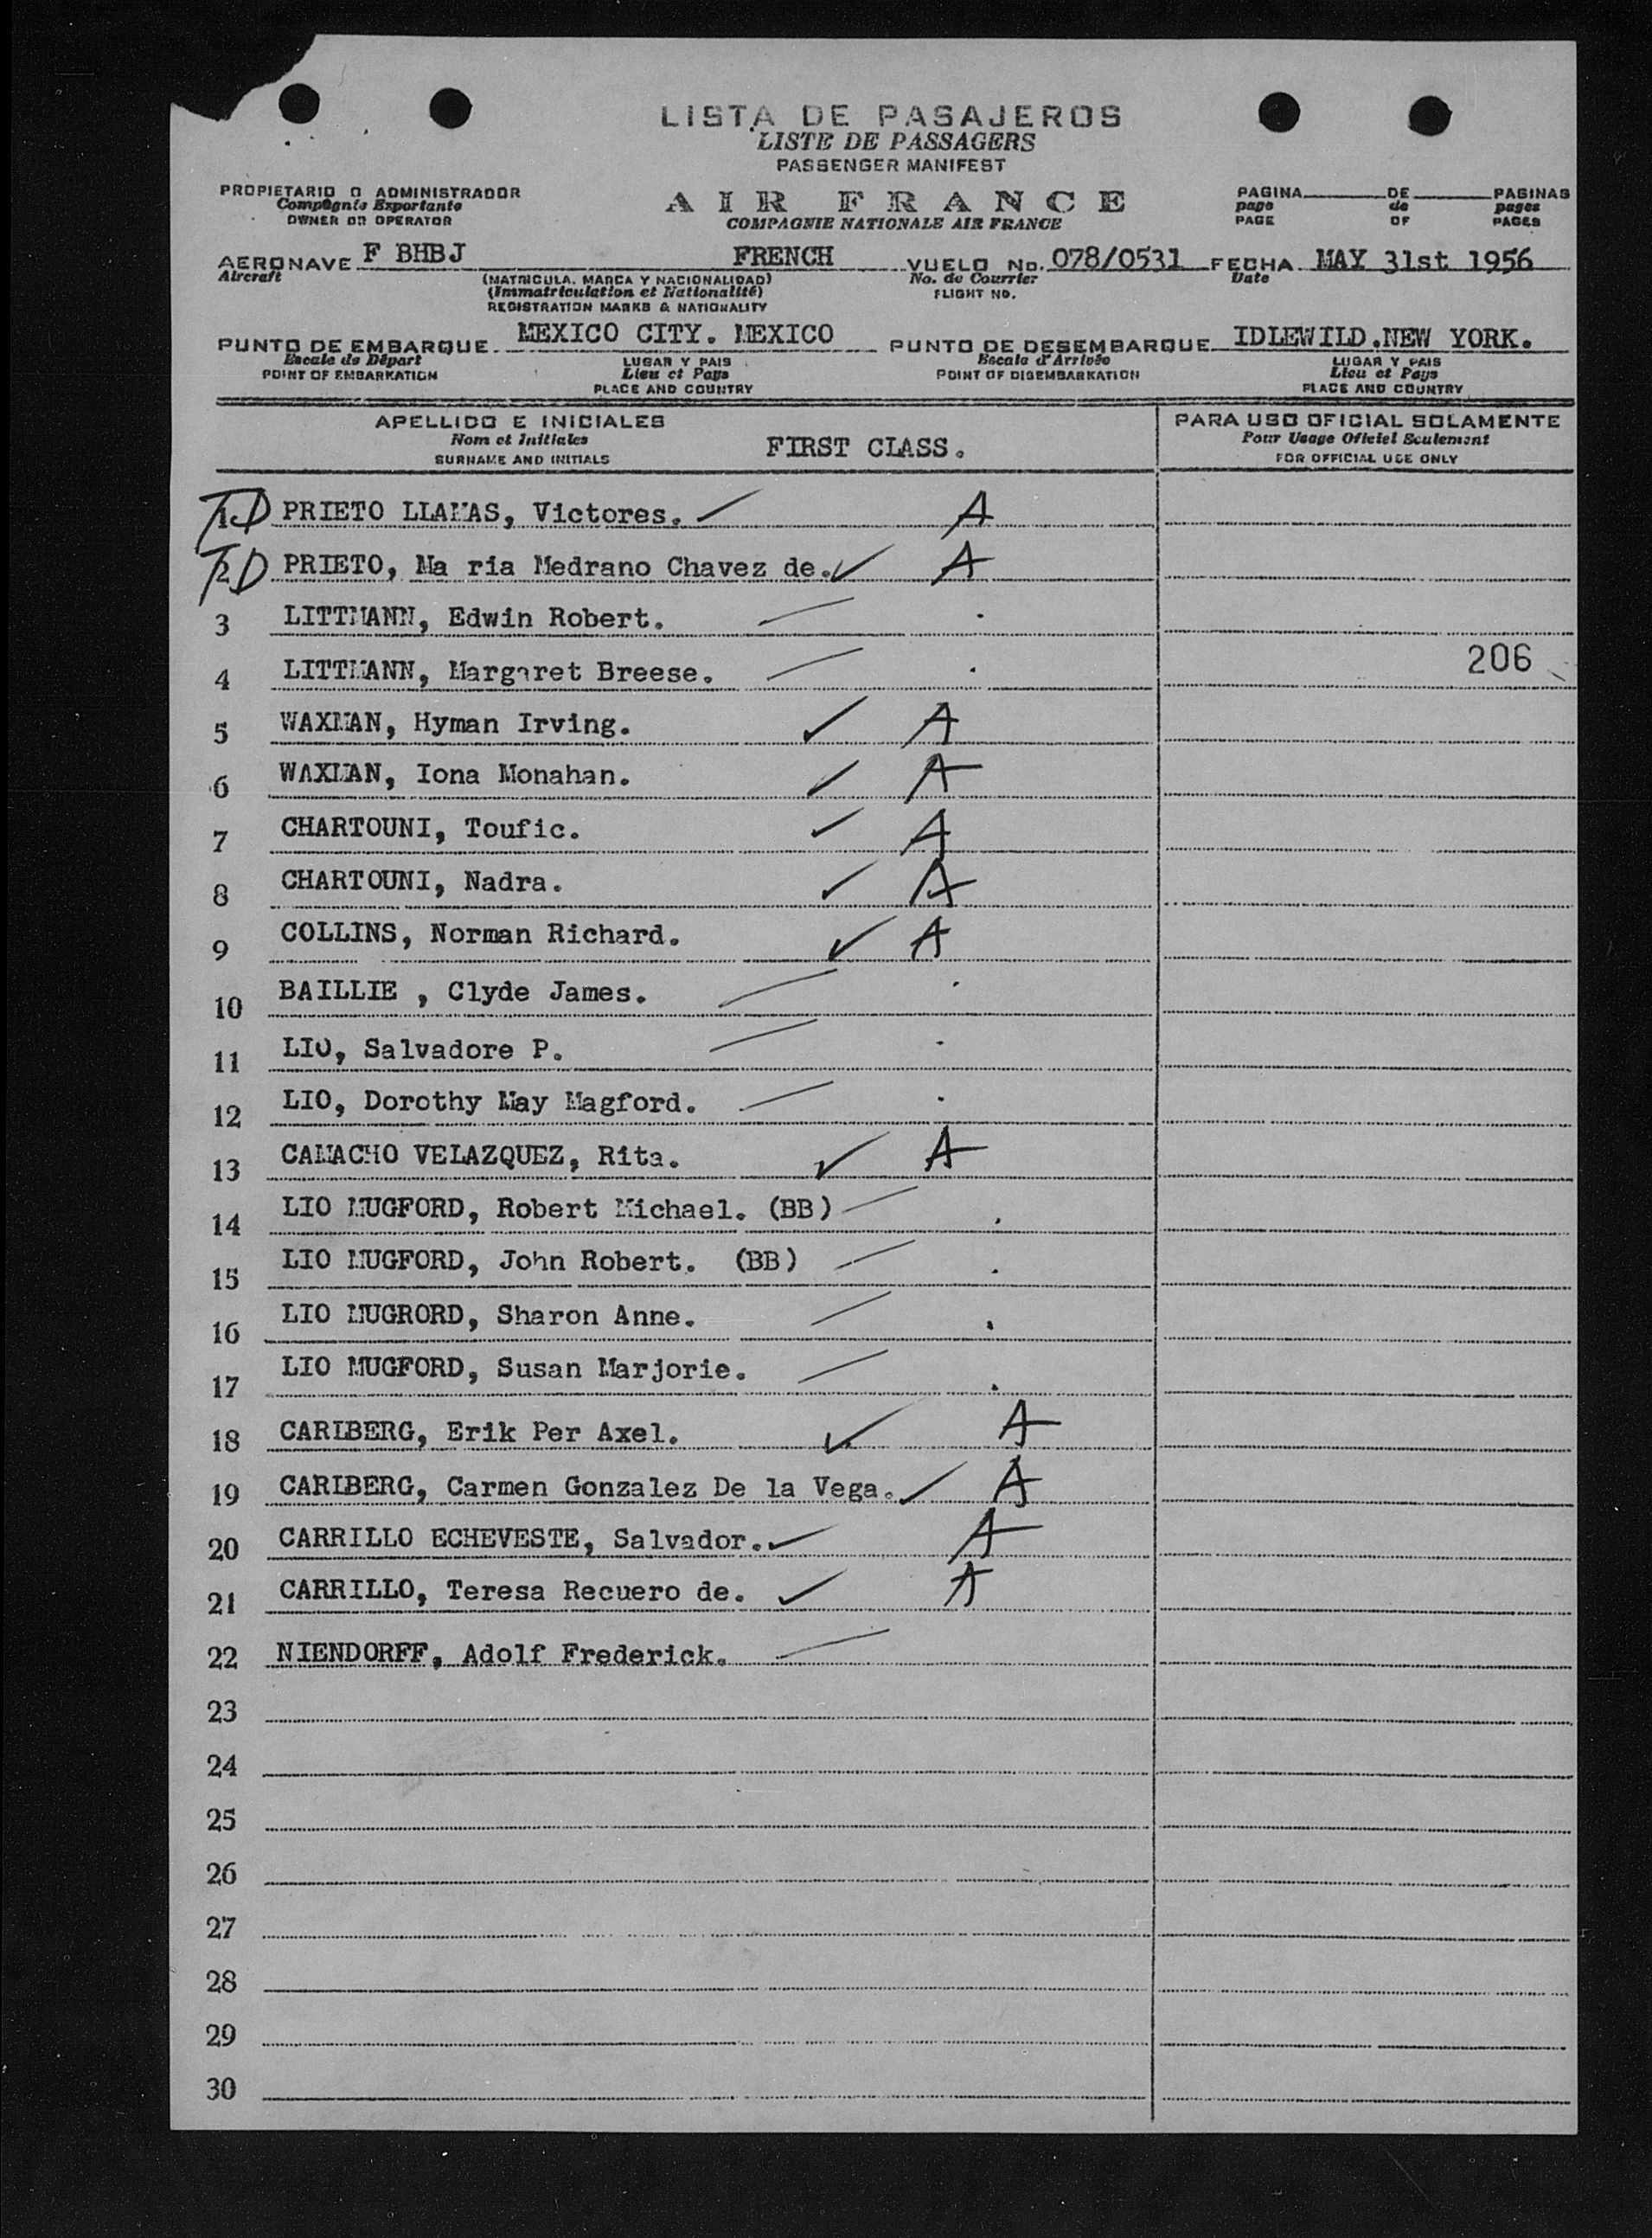 LISTA DE PASAJEROS
LISTE DE PASSAGERS
PASSENGER MANIFEST
PROPIETARIO O ADMINISTRADOR
Compagnie Exportante
OWNER OR OPERATOR
AIR FRANCE
COMPAGNIE NATIONALE AIR FRANCE
PAGINA DE PAGINAS
page de pages
PAGE OF PAGES
AERONAVE F BHBJ FRENCH VUELO No. 078/0531 FECHA MAY 31st 1956
Aircraft (MATRICULA, MARCA Y NACIONALIDAD) No. de Courrier Date
(Immatriculation et Nationalité) FLIGHT NO.
REGISTRATION MARKS & NATIONALITY
PUNTO DE EMBARQUE MEXICO CITY. MEXICO PUNTO DE DESEMBARQUE IDLEWILD.NEW YORK.
Escale de Départ LUGAR Y PAIS Escale d'Arrivée LUGAR Y PAIS
POINT OF EMBARKATION Lieu et Pays POINT OF DISEMBARKATION Lieu et Pays
PLACE AND COUNTRY PLACE AND COUNTRY
APELLIDO E INICIALES
Nom et Initiales
SURNAME AND INITIALS
FIRST CLASS.
PARA USO OFICIAL SOLAMENTE
Pour Usage Oficiel Seulement
FOR OFFICIAL USE ONLY
1 TD PRIETO LLAMAS, Victores. ✓ A
2 TD PRIETO, Ma ria Medrano Chavez de. ✓ A
3 LITTMANN, Edwin Robert.
206
4 LITTMANN, Margaret Breese.
5 WAXMAN, Hyman Irving. ✓ A
6 WAXMAN, Iona Monahan. ✓ A
7 CHARTOUNI, Toufic. ✓ A
8 CHARTOUNI, Nadra. ✓ A
9 COLLINS, Norman Richard. ✓ A
10 BAILLIE , Clyde James.
11 LIO, Salvadore P.
12 LIO, Dorothy May Magford.
13 CAMACHO VELAZQUEZ, Rita. ✓ A
14 LIO MUGFORD, Robert Michael. (BB)
15 LIO MUGFORD, John Robert. (BB)
16 LIO MUGRORD, Sharon Anne.
17 LIO MUGFORD, Susan Marjorie.
18 CARLBERG, Erik Per Axel. ✓ A
19 CARLBERG, Carmen Gonzalez De la Vega. ✓ A
20 CARRILLO ECHEVESTE, Salvador. ✓ A
21 CARRILLO, Teresa Recuero de. ✓ A
22 NIENDORFF, Adolf Frederick.
23
24
25
26
27
28
29
30